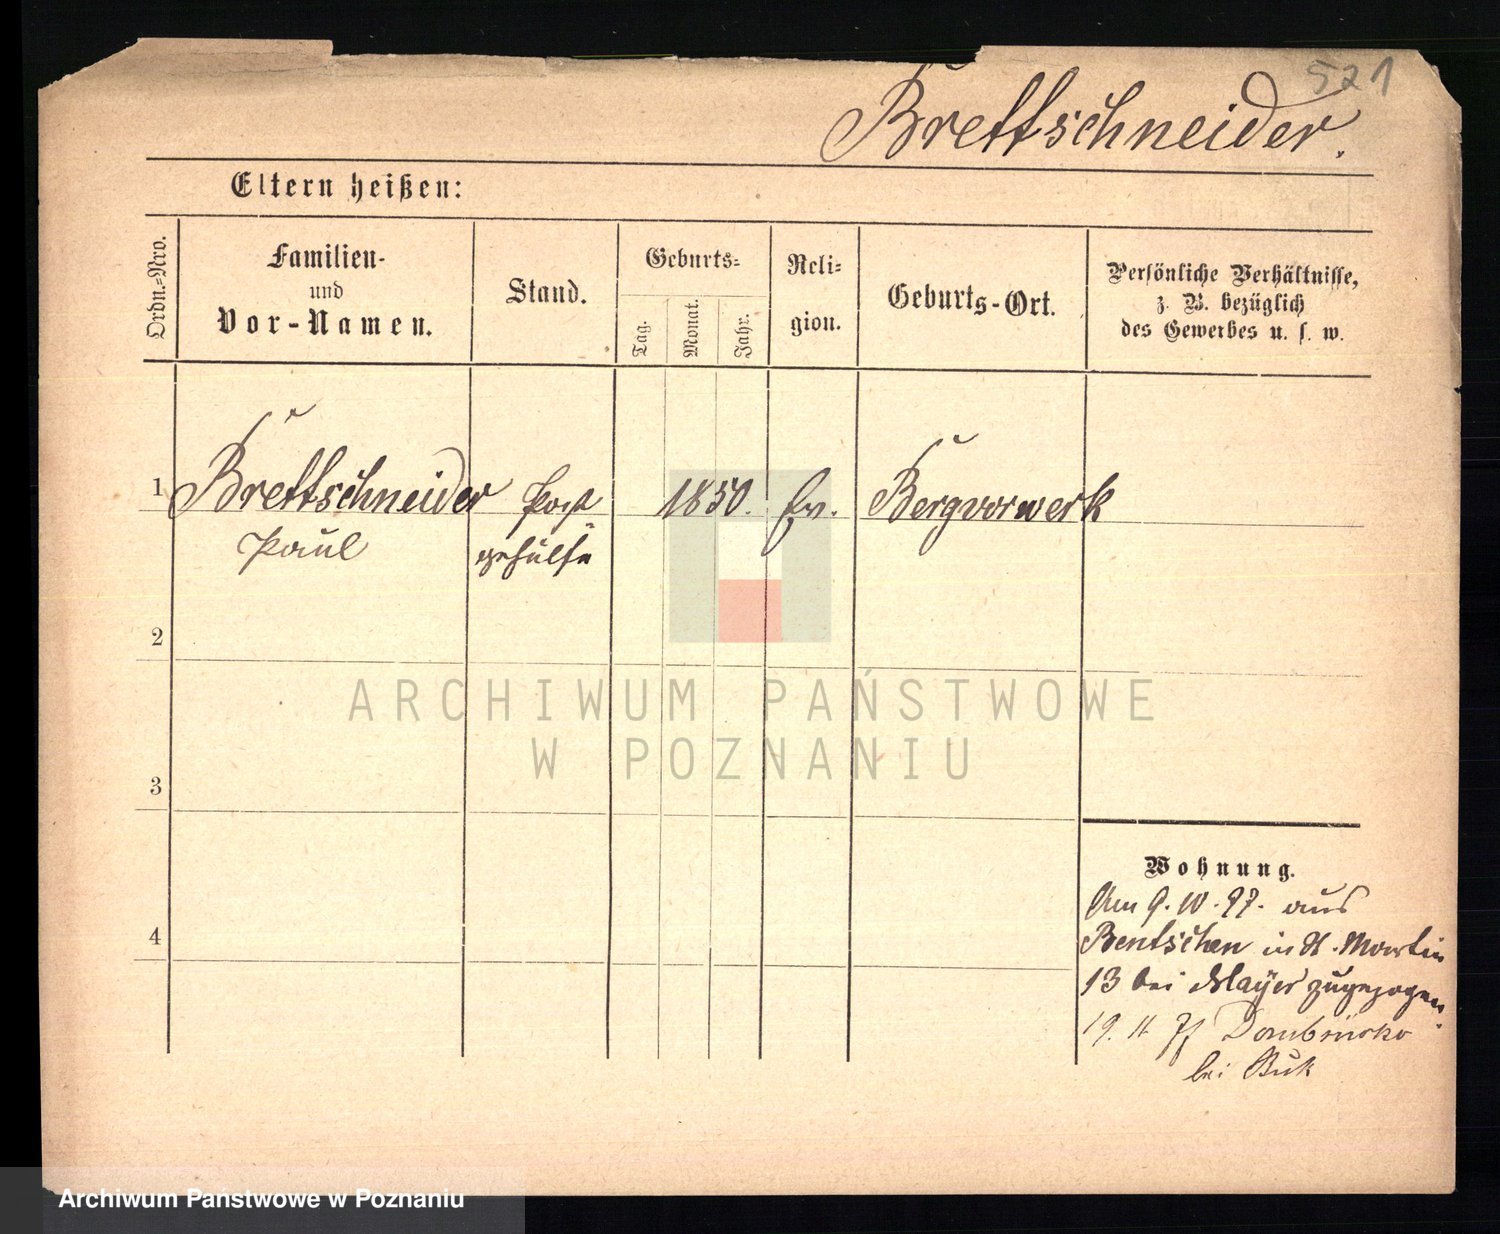 521
Brettschneider.
Eltern heißen:
Ordn.-Nro.
Familien-
und
Vor-Namen.
Stand.
Geburts-
Tag.
Monat.
Jahr.
Reli-
gion.
Geburts-Ort.
Persönliche Verhältnisse,
z. B. bezüglich
des Gewerbes u. s. w.
1 Brettschneider Post 1850. Ev. Bergvorwerk
Paul gehülfe
2
ARCHIWUM PAŃSTWOWE
W POZNANIU
3
Wohnung.
Am 9.10.97. aus
Bentschen in St. Martin
13 bei Mayer zugezogen
19. 11. 7/ Dombrowko
bei Buk
4
Archiwum Państwowe w Poznaniu